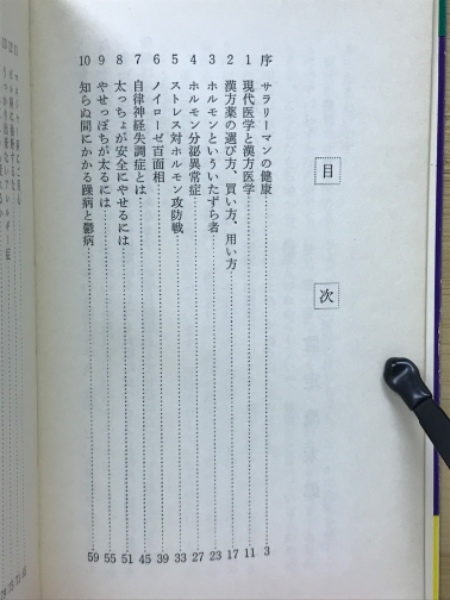 目次
序 サラリーマンの健康 3
1 現代医学と漢方医学 11
2 漢方薬の選び方、買い方、用い方 17
3 ホルモンといういたずら者 23
4 ホルモン分泌異常症 27
5 ストレス対ホルモン攻防戦 33
6 ノイローゼ百面相 39
7 自律神経失調症とは 45
8 太っちょが安全にやせるには 51
9 やせっぽちが太るには 55
10 知らぬ間にかかる躁病と鬱病 59